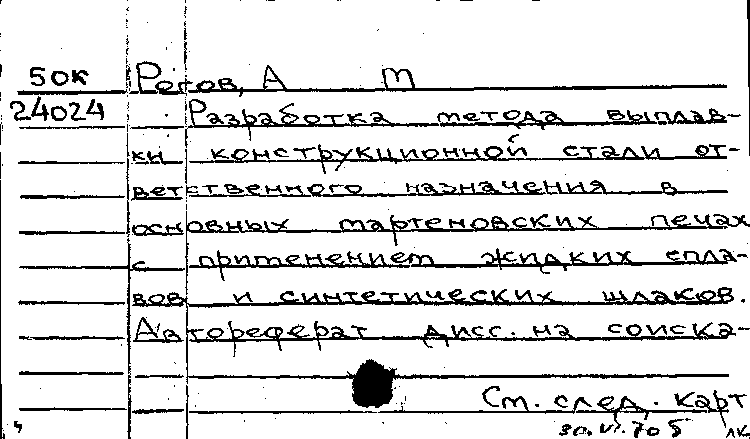 50к Рогов, А М
24024 Разработка метода выплав-
ки конструкционной стали от-
ветственного назначения в
основных мартеновских печах
с применением жидких спла-
вов и синтетических шлаков.
Автореферат дисс. на соиска-
См. след. карт
30.VI.70